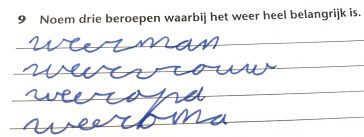 9 Noem drie beroepen waarbij het weer heel belangrijk is.
weerman
weervrouw
weeropa
weeroma